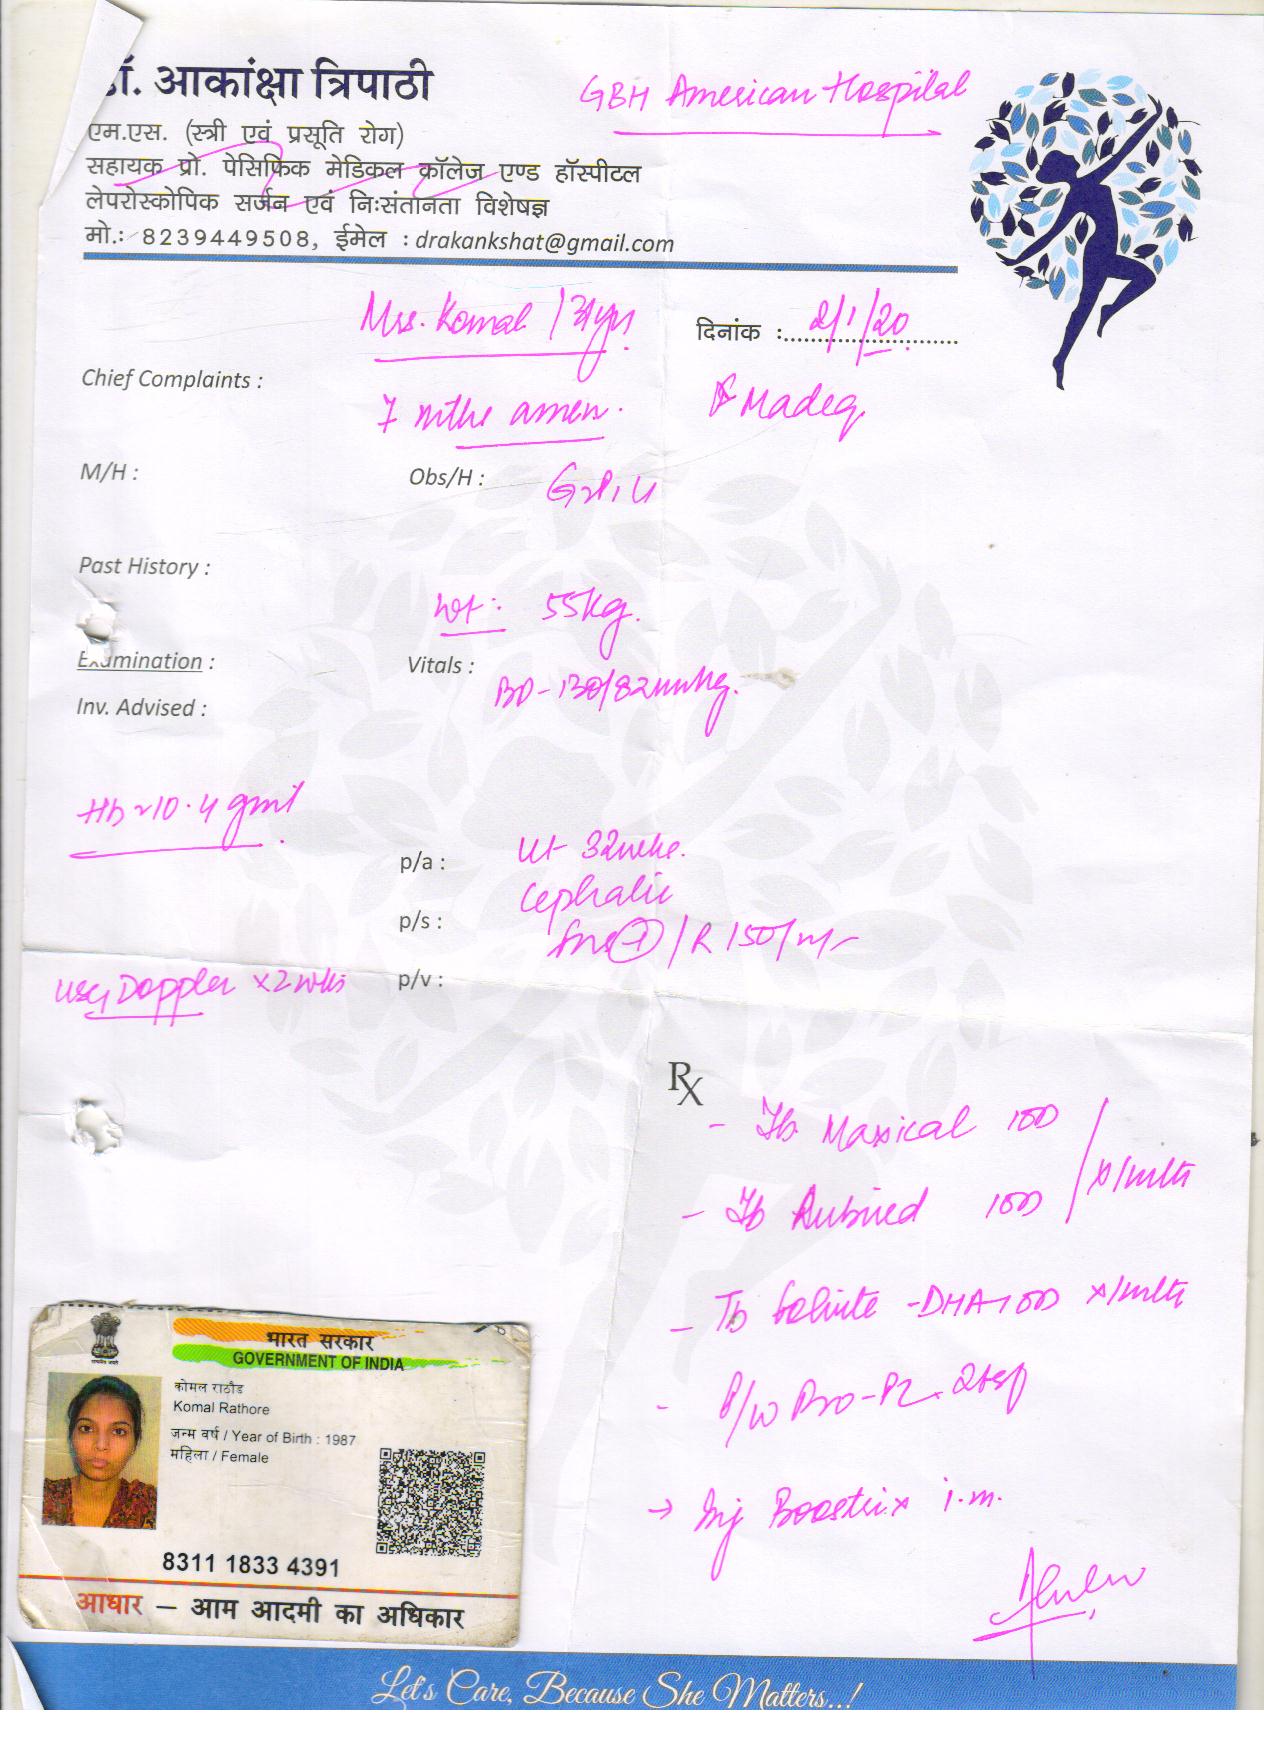 डॉ. आकांक्षा त्रिपाठी
GBH American Hospital
एम.एस. (स्त्री एवं प्रसूति रोग)
सहायक प्रो. पेसिफिक मेडिकल कॉलेज एण्ड हॉस्पीटल
लेपरोस्कोपिक सर्जन एवं निःसंतानता विशेषज्ञ
मो.: 8239449508, ईमेल : drakankshat@gmail.com
Mrs. Komal /
दिनांक : 2/1/20
Chief Complaints :
7 mths amen.
M/H :
Obs/H :
Past History :
Wt: 55kg.
Examination :
Vitals :
BP - 130/82mmHg.
Inv. Advised :
Hb ~ 10.4 gm%
p/a :
Ut 32wks.
Cephalic
p/s :
FHS + / R 150/m/-
USG Doppler x 2 wks
p/v :
Rx
- Tb Maxical 1OD
- Tb Rubired 1OD
x 1mth
- Tb -DHA 1OD x 1mth
- P/w Pro-PL 2tsp
→ Inj Boostrix i.m.
भारत सरकार
GOVERNMENT OF INDIA
कोमल राठौड
Komal Rathore
जन्म वर्ष / Year of Birth : 1987
महिला / Female
8311 1833 4391
आधार – आम आदमी का अधिकार
Let's Care, Because She Matters..!